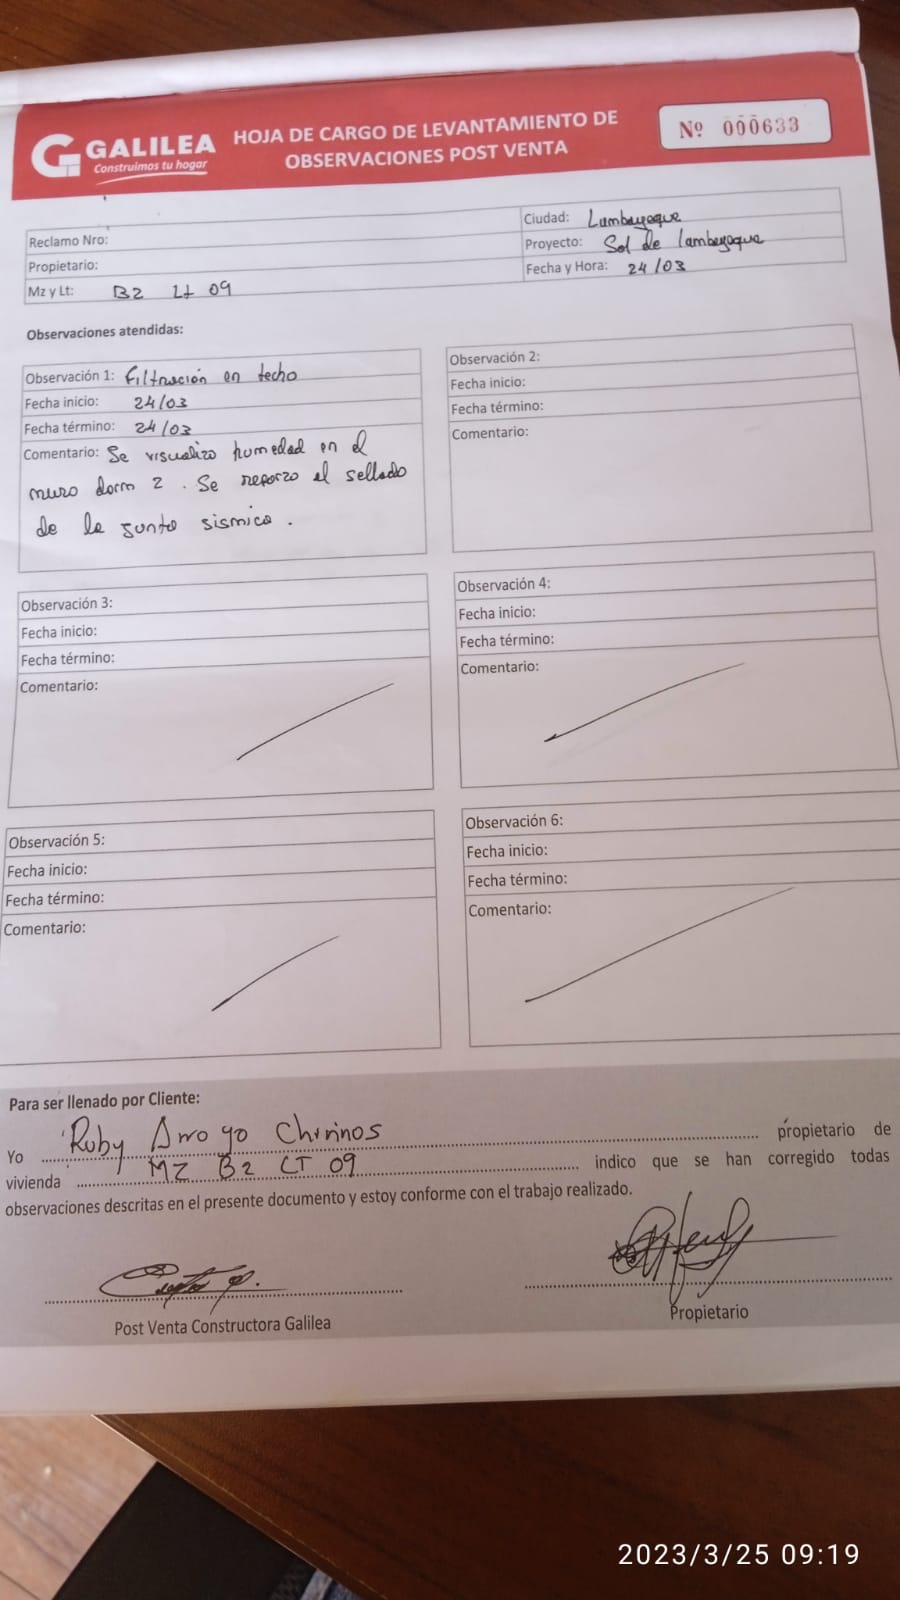 GALILEA
Construimos tu hogar
HOJA DE CARGO DE LEVANTAMIENTO DE
OBSERVACIONES POST VENTA
Nº 000633
Reclamo Nro:
Propietario:
Mz y Lt: B2 Lt 09
Ciudad: Lambayeque
Proyecto: Sol de lambayeque
Fecha y Hora: 24/03
Observaciones atendidas:
Observación 1: Filtración en techo
Fecha inicio: 24/03
Fecha término: 24/03
Comentario: Se visualizo humedad en el
muro dorm 2 . Se reforzo el sellado
de la junta sismica .
Observación 2:
Fecha inicio:
Fecha término:
Comentario:
Observación 3:
Fecha inicio:
Fecha término:
Comentario:
Observación 4:
Fecha inicio:
Fecha término:
Comentario:
Observación 5:
Fecha inicio:
Fecha término:
Comentario:
Observación 6:
Fecha inicio:
Fecha término:
Comentario:
Para ser llenado por Cliente:
Yo Ruby Arroyo Chirinos propietario de
vivienda MZ B2 LT 09 indico que se han corregido todas
observaciones descritas en el presente documento y estoy conforme con el trabajo realizado.
Post Venta Constructora Galilea
Propietario
2023/3/25 09:19